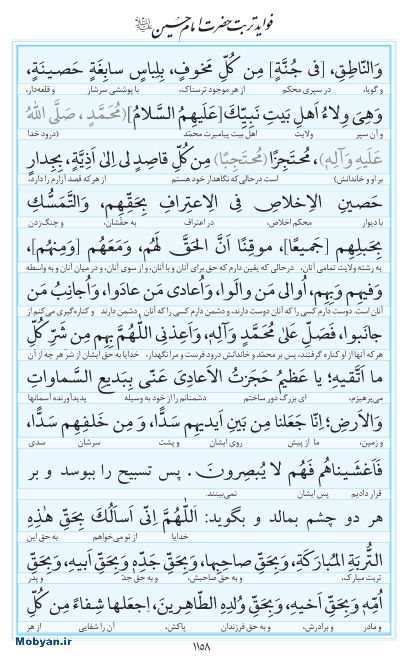 فواید تربت حضرت امام حسین
وَالنّاطِقِ، [فی جُنَّةٍ] مِن كُلِّ مَخوفٍ، بِلِباسٍ سابِغَةٍ حَصینَةٍ،
و گویا، در سپری محکم از هر موجود ترسناک، با پوششی سرشار و قلعه‌دار،
وَهِیَ وِلاءُ اَهلِ بَیتِ نَبِیِّكَ [عَلَیهِمُ السَّلامُ] (مُحَمَّدٍ، صَلَّی اللهُ
و آن سپر ولایت اهل بیت پیامبرت محمّد (درود خدا
عَلَیهِ وَآلِهِ)، مُحتَجِزًا (مُحتَجِبًا) مِن كُلِّ قاصِدٍ لی اِلیٰ اَذِیَّةٍ، بِجِدارٍ
بر او و خاندانش) است در حالی که نگاهدار خود هستم از هر که قصد آزارم را دارد،
حَصینِ الاِخلاصِ فِی الاِعتِرافِ بِحَقِّهِم، وَالتَّمَسُّكِ
با دیوار محکم اخلاص، در اعتراف به حقّشان، و چنگ‌زدن
بِحَبلِهِم [جَمیعًا]، موقِنًا اَنَّ الحَقَّ لَهُم، وَمَعَهُم [وَمِنهُم]،
به رشته ولایت تمامی آنان، در حالی که یقین دارم که حق برای آنان و با آنان، و از سوی آنان، و در میان آنان و به واسطه
وَفیهِم وَبِهِم، اُوالی مَن والَوا، وَاُعادی مَن عادَوا، وَاُجانِبُ مَن
آنان است. دوست دارم کسی را که آنان دوست دارند، و دشمن دارم کسی را که آنان دشمن دارند و کناره‌گیری می‌کنم از
جانَبوا، فَصَلِّ عَلیٰ مُحَمَّدٍ وَآلِهِ، وَاَعِذنِی اللّٰهُمَّ بِهِم مِن شَرِّ كُلِّ
هر که آنها از او کناره گرفتند، پس بر محمّد و خاندانش درود فرست و مرا نگهدار، خدایا به حق ایشان از شر هر چه از آن
ما اَتَّقیهِ؛ یا عَظیمُ حَجَزتُ الاَعادِیَ عَنّی بِبَدیعِ السَّماواتِ
می‌پرهیزم، ای بزرگ دور ساختم دشمنانم را از خود به وسیله پدیدآورنده آسمانها
وَالاَرضِ؛ اِنّا جَعَلنا مِن بَینِ اَیدیهِم سَدًّا، وَ مِن خَلفِهِم سَدًّا،
و زمین، ما از پیش روی ایشان و پشت سرشان سدی
فَاَغشَیناهُم فَهُم لا یُبصِرونَ. پس تسبیح را ببوسد و بر
قرار دادیم پس ایشان نمی‌بینند.
هر دو چشم بمالد و بگوید: اَللّٰهُمَّ اِنّی اَساَلُكَ بِحَقِّ هٰذِهِ
خدایا از تو می‌خواهم به حق این
التُّربَةِ المُبارَكَةِ، وَبِحَقِّ صاحِبِها، وَبِحَقِّ جَدِّهِ وَبِحَقِّ اَبیهِ، وَبِحَقِّ
تربت مبارک، و به حق صاحبش، و به حق جدّ و پدر
اُمِّهِ وَبِحَقِّ اَخیهِ، وَبِحَقِّ وُلدِهِ الطّاهِرینَ، اِجعَلها شِفاءً مِن كُلِّ
و مادر و برادرش، و به حق فرزندان پاکش، آن را شفایی از هر
Mobyan.ir
۱۱۵۸